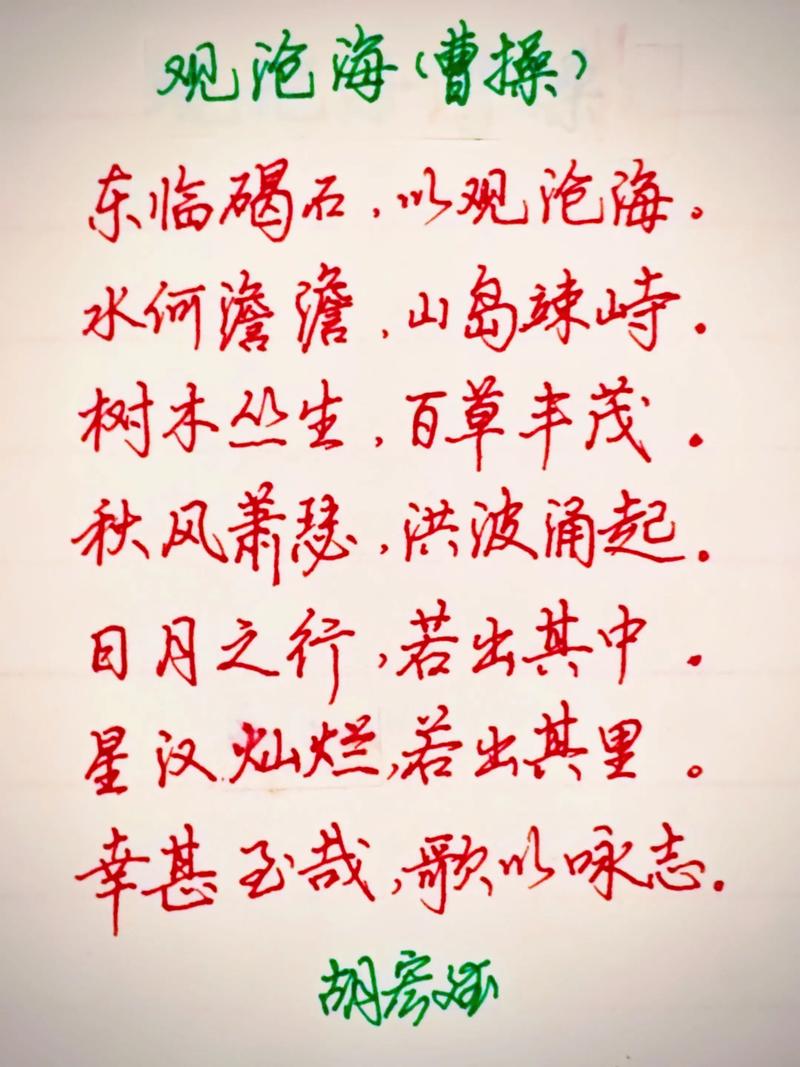 观沧海(曹操)
东临碣石,以观沧海。
水何澹澹,山岛竦峙。
树木丛生,百草丰茂。
秋风萧瑟,洪波涌起。
日月之行,若出其中。
星汉灿烂,若出其里。
幸甚至哉,歌以咏志。
胡宏斌